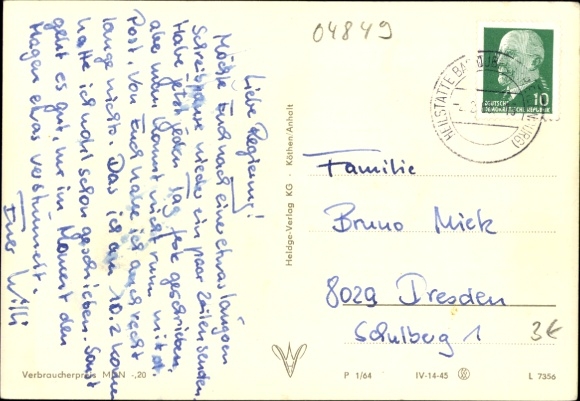 Liebe Regierung!
Möchte Euch nach eine etwas langen
Schreibpause wieder ein paar Zeilen senden
Habe jetzt jeden Tag fest geschrieben,
aber man kommt nicht rum mit d.
Post. Von Euch habe ich auch recht
lange nichts. Das ich am 10.2 komme
hatte ich wohl schon geschrieben. Sonst
geht es gut, nur im Moment den
Magen etwas verstimmt.
Euer Willi
Verbraucherpreis MDN -,20
Heldge-Verlag KG · Köthen/Anhalt
04849
HEILSTÄTTE BAD
BURG)
DEUTSCHE
DEMOKRATISCHE REPUBLIK
10
Familie
Bruno Mick
8029 Dresden
Schulberg 1
3€
P 1/64 IV-14-45 L 7356